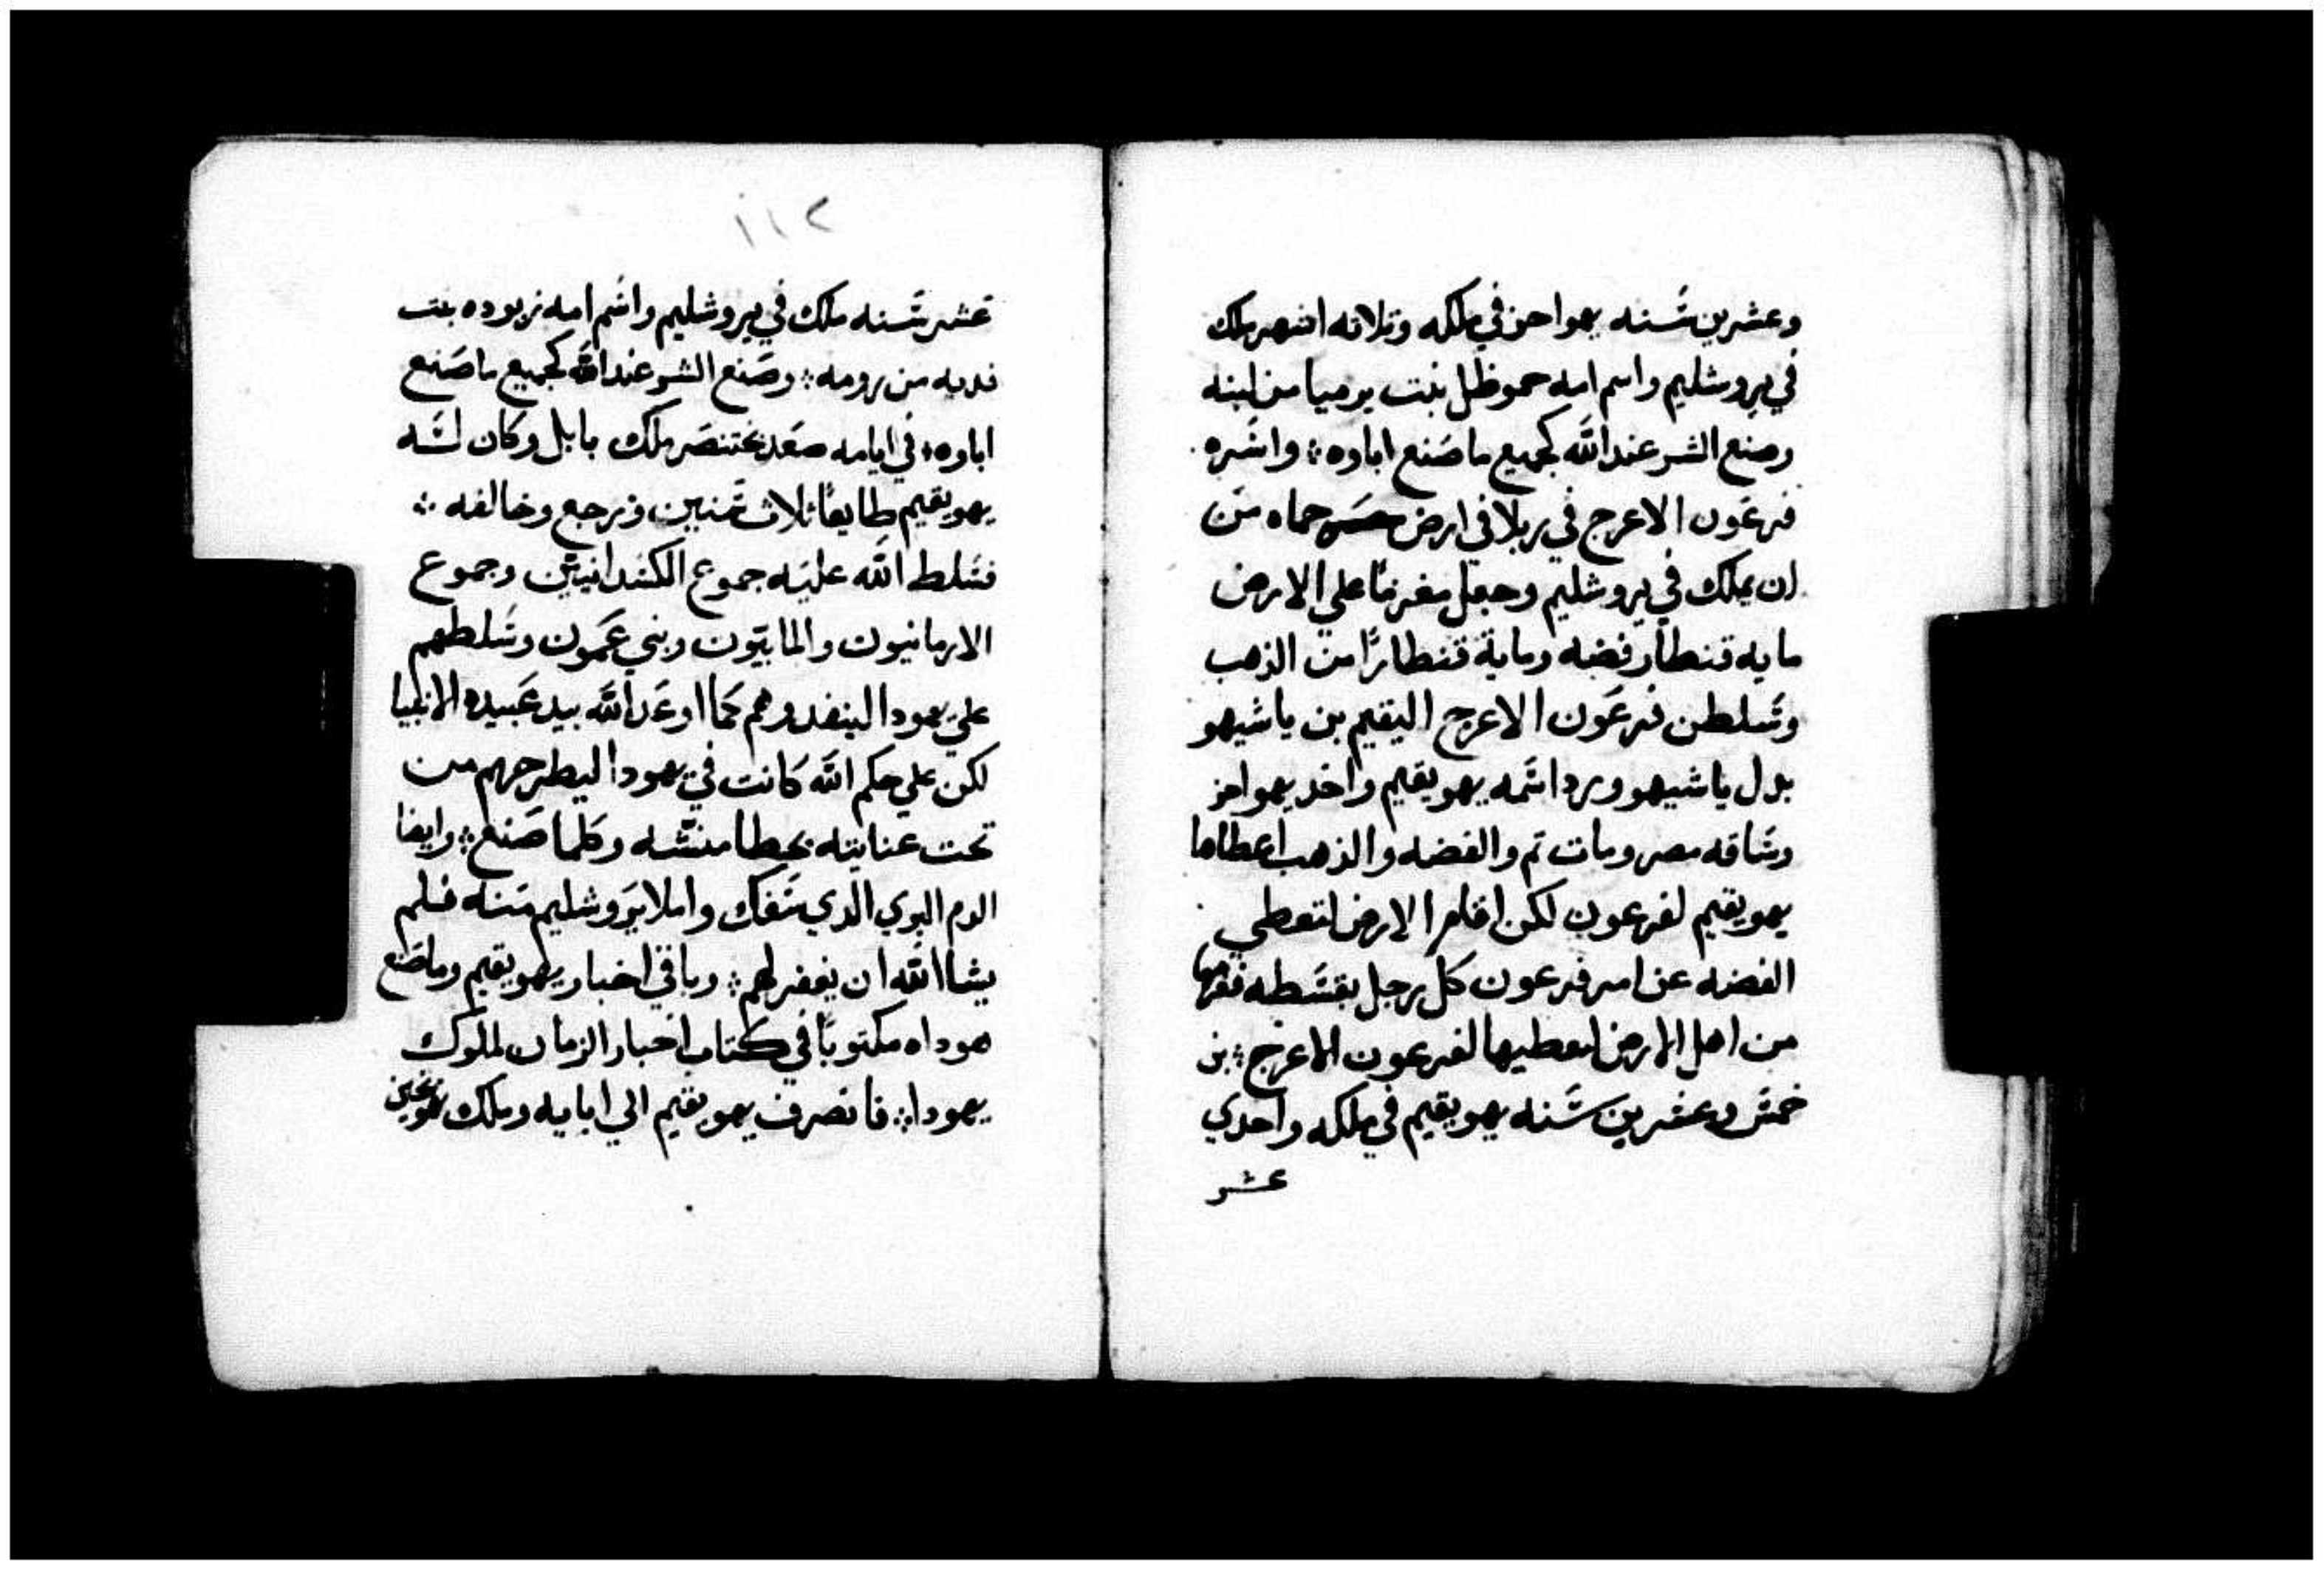 وعشرين سنه يهواحز في ملكه وتلاته اشهر ملك
في يروشليم واسم امه حموظل بنت يرميا من لبنه
وصنع الشر عند الله كجميع ما صنع اباوه ؛ واسره
فرعون الاعرج في ربلا في ارض حماه من
ان يملك في يروشليم وجعل مغرمًا علي الارض
مايه قنطار فضه وماية قنطارًا من الذهب
وسلطن فرعون الاعرج اليقيم بن ياشيهو
بدل ياشيهو ورد اسمه يهويقيم واخد يهواحز
وساقه مصر ومات تم والفضه والذهب اعطاها
يهويقيم لفرعون لكن اقام الارض لتعطي
الفضه عن امر فرعون كل رجل بقسطه
من اهل الارض لعطيها لفرعون الاعرج ؛ بن
خمس وعشرين سنه يهويقيم في ملكه واحدي
عشر
١١٢
عشر سنه ملك في يروشليم واسم امه زبوده بنت
فديه من رومه ؛ وصنع الشر عند الله كجميع ما صنع
اباوه ؛ في ايامه صعد بختنصر ملك بابل وكان له
يهويقيم طايعًا ثلاث سنين ورجع وخالفه ؛
فسلط الله عليه جموع الكسدانيين وجموع
الارمانيون والمابيون وبني عمون وسلطهم
علي يهودا لينفدوهم كما اوعد الله بيد عبيده الانبيا
لكن علي حكم الله كانت في يهودا ليطرحهم من
تحت عنايته بخطا منسه وكلما صنع ؛ وايضا
الدم البري الدي سفك واملا يروشليم منه فلم
يشا الله ان يغفر لهم ؛ وباقي اخبار يهويقيم وما صنع
هوداه مكتوبًا في كتاب اخبار الزمان لملوك
يهودا ؛ فانصرف يهويقيم الي ابايه وملك